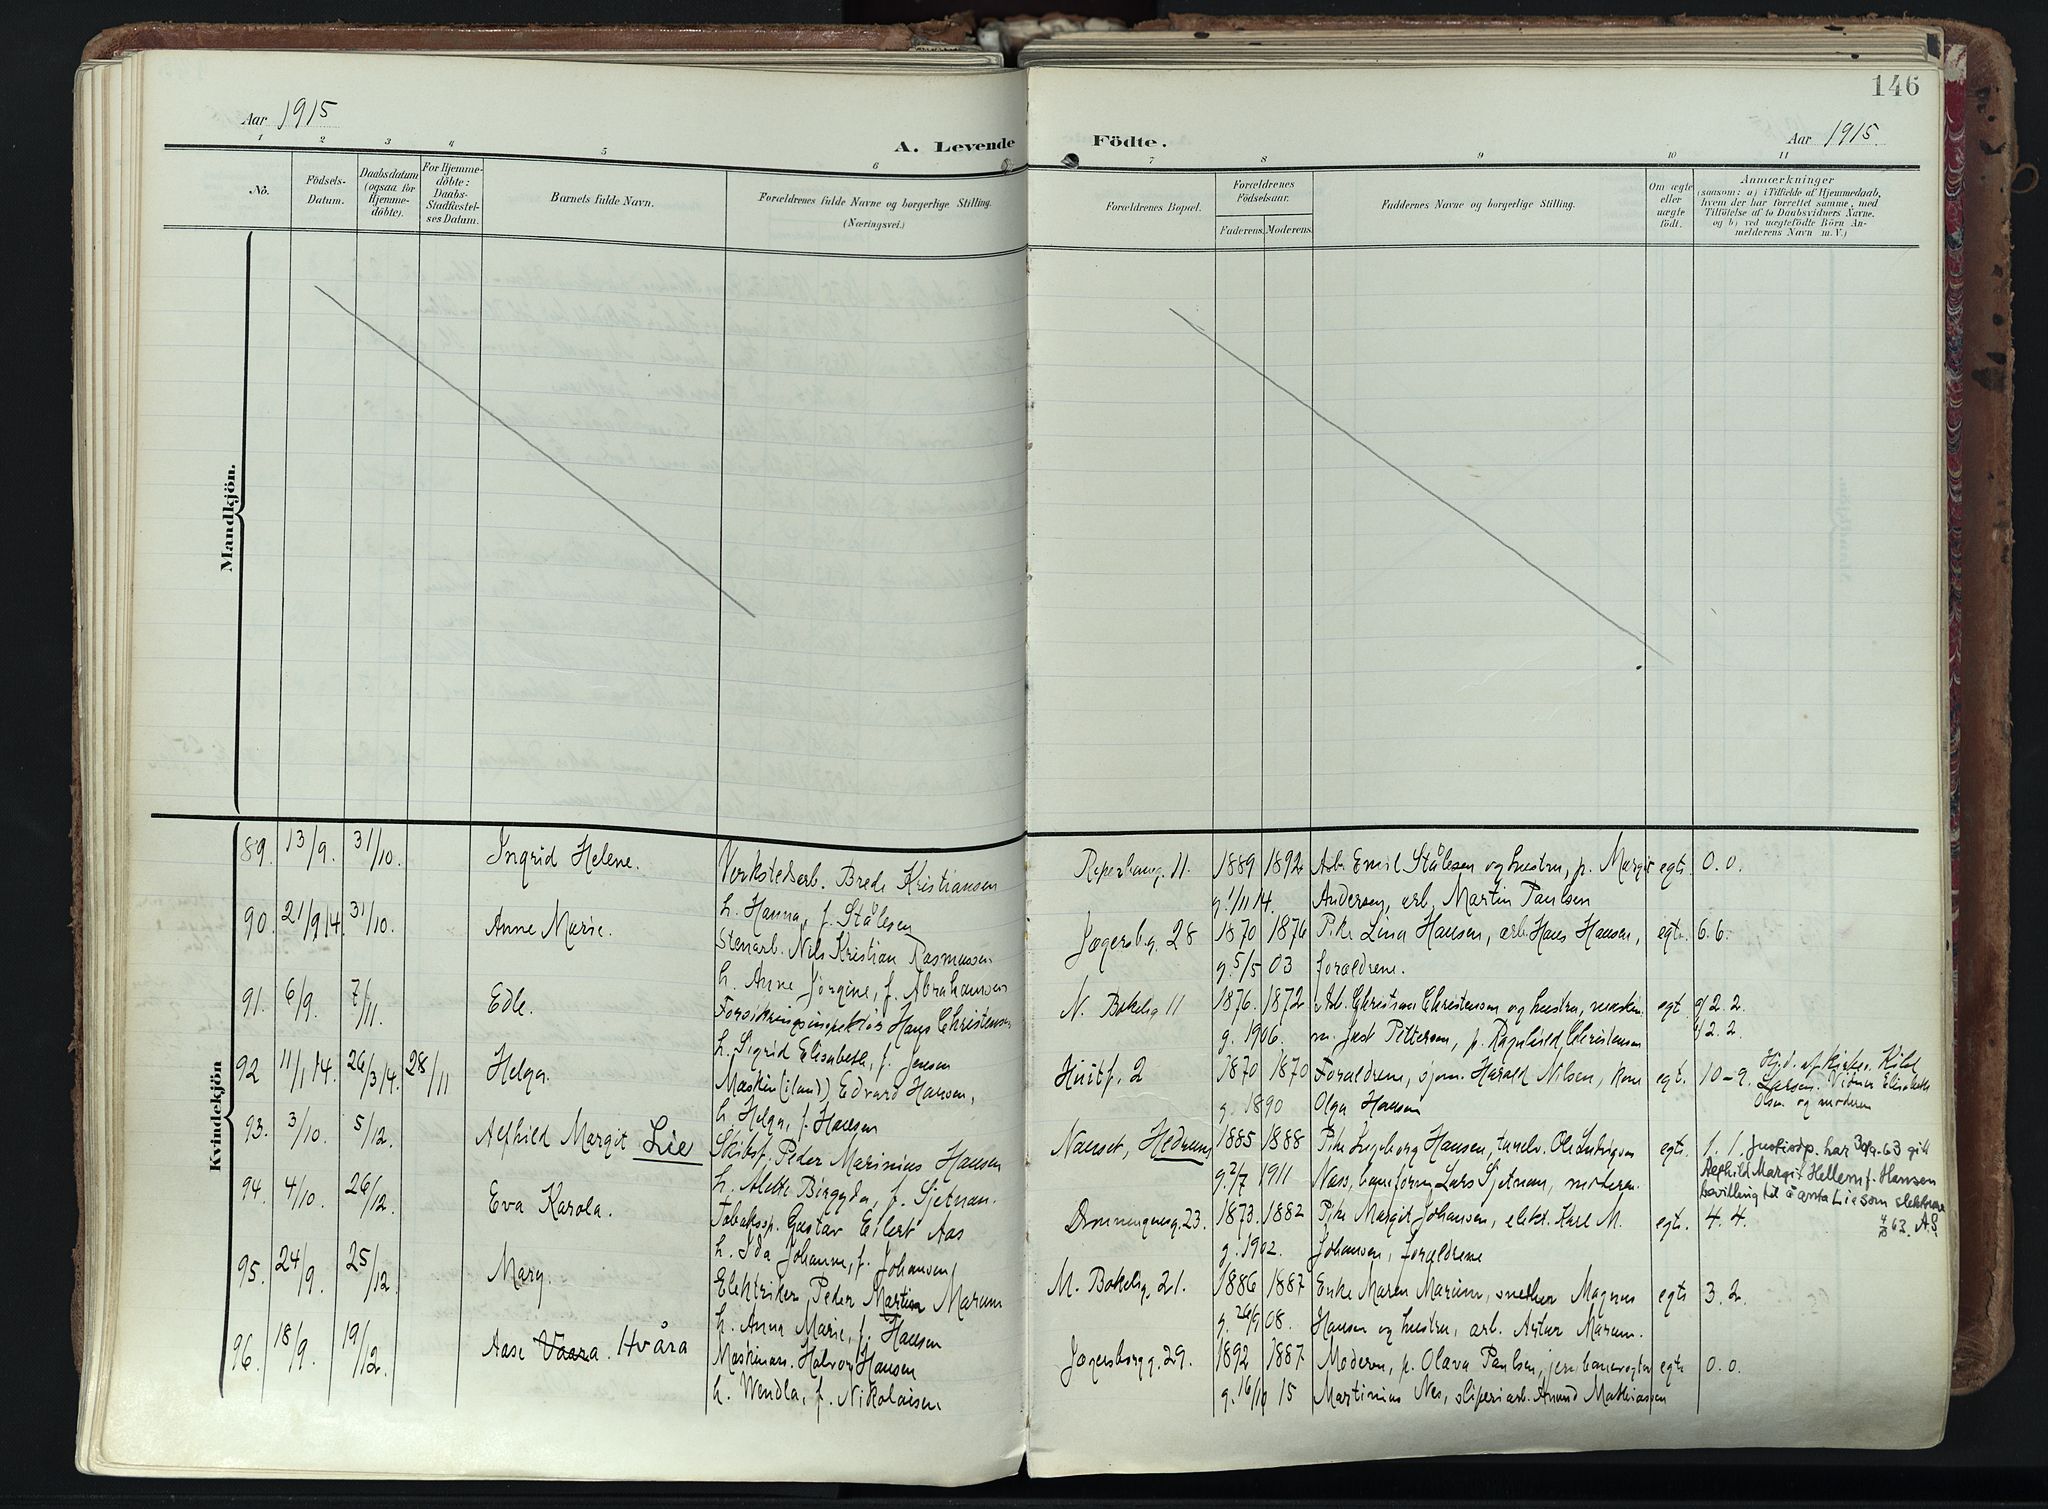 146
Aar 1915
Aar 1915.
A. Levende Födte.
1 2 3 4 5 6 7 8 9 10 11
No.
Födsels-
Datum.
Daabsdatum
(ogsaa for
Hjemme-
döbte).
For Hjemme-
döbte:
Daabs-
Stadfæstel-
ses Datum.
Barnets fulde Navn.
Forældrenes fulde Navne og borgerlige Stilling.
(Næringsvei.)
Forældrenes Bopæl.
Forældrenes
Födselsaar.
Faderens.
Moderens.
Faddernes Navne og borgerlige Stilling.
Om ægte
eller
uægte
født.
Anmærkninger
(saasom: a) i Tilfælde af Hjemmedaab,
hvem der har forrettet samme, med
Tilföielse af to Daabsvidners Navne,
og b) ved uægtefödte Börn An-
melderens Navn m. V.)
Mandkjön.
Kvindekjön
89. 13/9. 31/10. Ingrid Helene. Verkstedsarb. Brede Kristiansen 11. 1889 1892 Arb. Emil Stålesen og hustru, p. Margit egte 0. 0.
h. Hanna, f. Stålesen g. 1/11 14. Andersen, arb. Martin Paulsen
90. 21/9 14. 31/10. Anne Marie. Stenarb. Nils Kristian Rasmussen Jægersb.g. 28 1870 1876 Pike Lina Hansen, arb. Hans Hansen, egte. 6. 6.
h. Anne Jørgine, f. Abrahamsen g. 5/5 03 forældrene.
91. 6/9. 7/11. Edle. Forsikringsinspektør Hans Christensen N. Bokelig 11 1876. 1872 Christensen og hustru, egt. 2. 2.
h. Sigrid Elisabeth, f. Jensen g. 1906. m. Just Pettersen, p. Ragnhild Christensen 2. 2.
92 11/1 14. 26/3 14. 28/11 Helga. Maskin (iland) Edvard Hansen, Huitf. 2 1870 1870 Forældrene, sjøm. Harald Nilsen, kone egt. 10-9. Hjd. af kirkes.
h. Helga, f. Hansen g. 1890 Olga Hansen Larsen. Vidner Elisabeth
Olsen og moderen
93. 3/10. 5/12. Alfhild Margit Lie Skibsf. Peder Marinius Hansen Nanset, Hedrum 1885 1888 Pike Ingeborg Hansen, Ole Ludvigsen egte. 1. 1. Justisdp. har 30/9-63 gitt
h. Alette Birgyda, f. Sjetnan. g. 2/7 1911 Næss, Lars Sjetnan, moderen. Alfhild Margit Hellem f. Hansen
bevilling til å anta Lie som slektsnavn
94. 4/10. 26/12. Eva Karola. Tobakssp. Gustav Eilert Aas Dronningensg. 23. 1873. 1882 Pike Margit Johansen, elekt. Karl M. egte. 4. 4.
h. Ida Johanne, f. Johansen g. 1902. Johansen, forældrene
95. 24/9. 25/12. Mary. Elektriker Peder Martin Marum M. Bokelig. 21. 1886 1887 Enke Maren Marum, snekker Magnus egte 3. 2.
h. Anna Marie, f. Hansen g. 26/9 08. Hansen og hustru, arb. Artur Marum.
96. 18/9. 19/12. Aase Vaara. Hvåra Maskinarb. Halvor Hansen Jægersborgg. 29. 1892 1887 Moderen, p. Olava Paulsen, jernbanevogter egte 0. 0.
h. Wendla, f. Nikolaisen g. 16/10 15 Martinius Næs, sliperiarb. Amund Mathiassen